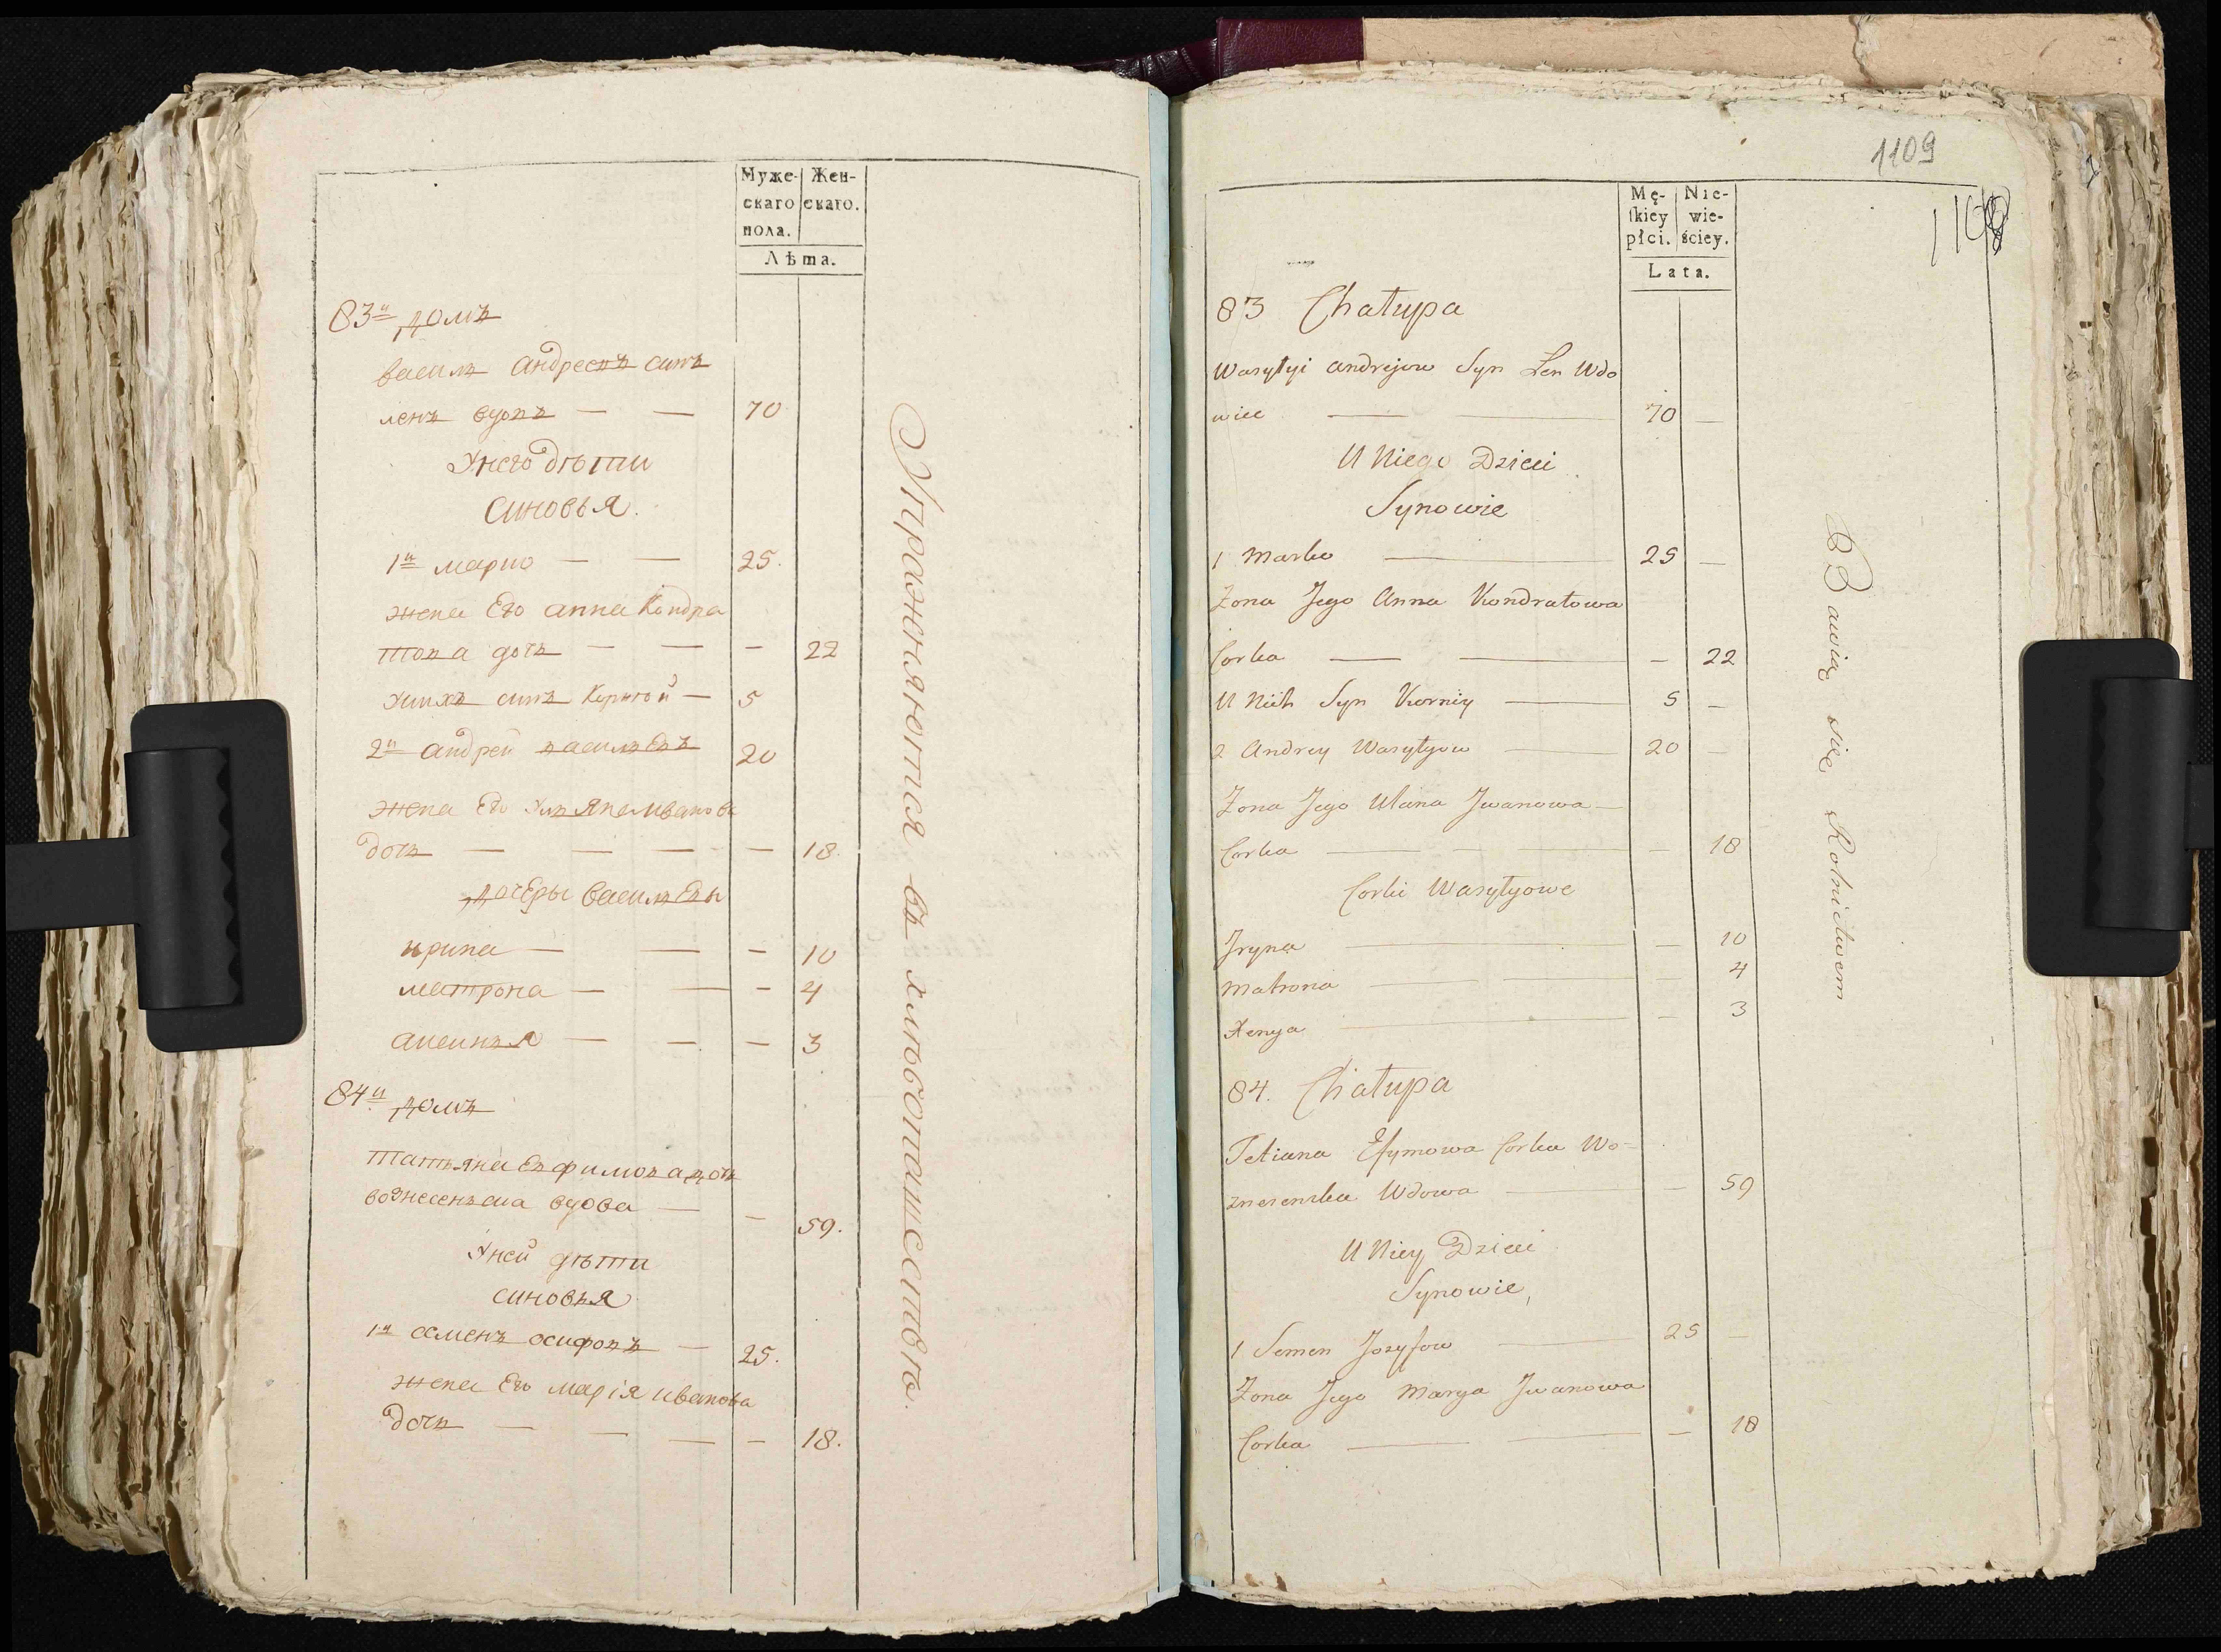 Муже-
скаго
пола.
Жен-
скаго.
Лѣта.
83й домъ
василь андреевъ синъ
ленъ вдовъ — — 70
Унего дѣти
синовья.
1й марко — — 25.
жена Его анна Кондра
това дочь — — — 22
Унихъ синъ Корнѣй — 5
2й андрей васильевъ 20
жена Его Ульяна Иванова
дочь — — — — 18.
дочеры васильевы
ирина — — — 10
матрона — — — 4
аксинья — — — 3
84й домъ
татьяна Евфимова дочь
вознесенъска вдова — — 59.
Уней дѣти
синовья
1й семенъ осифовъ — 25.
жена Его марія иванова
дочь — — — — 18.
Упражняются въ хлѣбопашествѣ.
1109
Mę-
skiey
płci.
Nie-
wie-
ściey.
Lata.
83 Chałupa
Wasylyi andrejow Syn Len Wdo
wiec — — 70 —
U Niego Dzieci
Synowie
1 Marko — 25 —
Zona Jego Anna Kondratowa
Corka — — — 22
U Nich Syn Korniy — 5 —
2 Andrey Wasylyow — 20 —
Zona Jego Ulana Jwanowa —
Corka — — — — 18
Corki Wasylyowe
Jryna — — 10
Matrona — — — 4
Xenya — — 3
84. Chałupa
Tetiana Efymowa Corka Wo-
znesenska Wdowa — — 59
U Niey Dzieci
Synowie,
1 Semen Jozyfow — 25 —
Zona Jego Marya Jwanowa
Corka — — — 18
Bawią się Rolnictwem